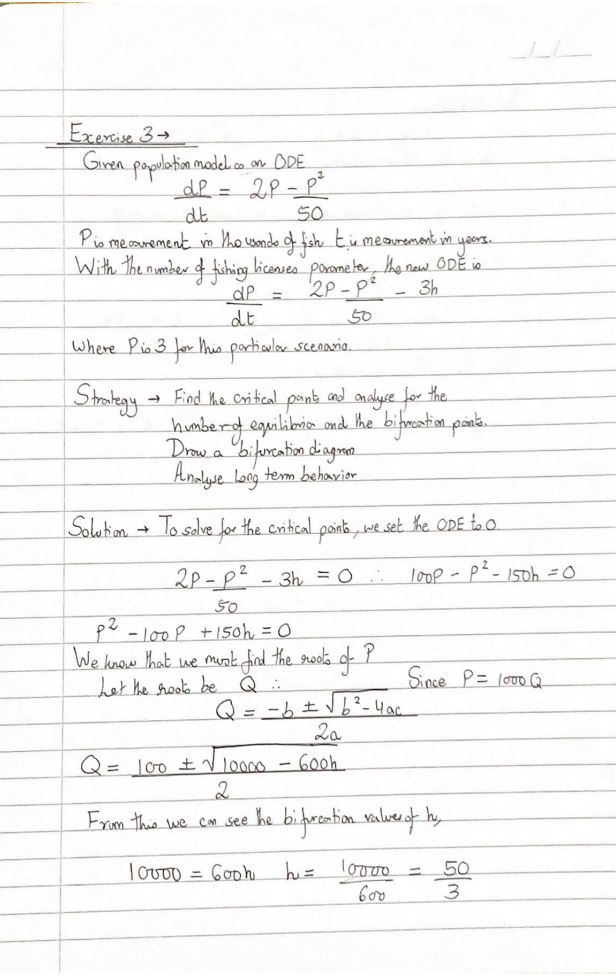 Exercise 3 →
Given population model as an ODE
dP/dt = 2P - P²/50
P is measurement in thousands of fish t is measurement in years.
With the number of fishing licenses parameter, the new ODE is
dP/dt = 2P - P²/50 - 3h
Where P is 3 for this particular scenario.
Strategy → Find the critical points and analyse for the
number of equilibria and the bifurcation points.
Draw a bifurcation diagram
Analyse long term behavior
Solution → To solve for the critical points, we set the ODE to 0
2P - P²/50 - 3h = 0 ∴ 100P - P² - 150h = 0
P² - 100P + 150h = 0
We know that we must find the roots of P
Let the roots be Q ∴ Since P = 1000Q
Q = -b ± √b² - 4ac / 2a
Q = 100 ± √10000 - 600h / 2
From this we can see the bifurcation values of h,
10000 = 600h h = 10000/600 = 50/3